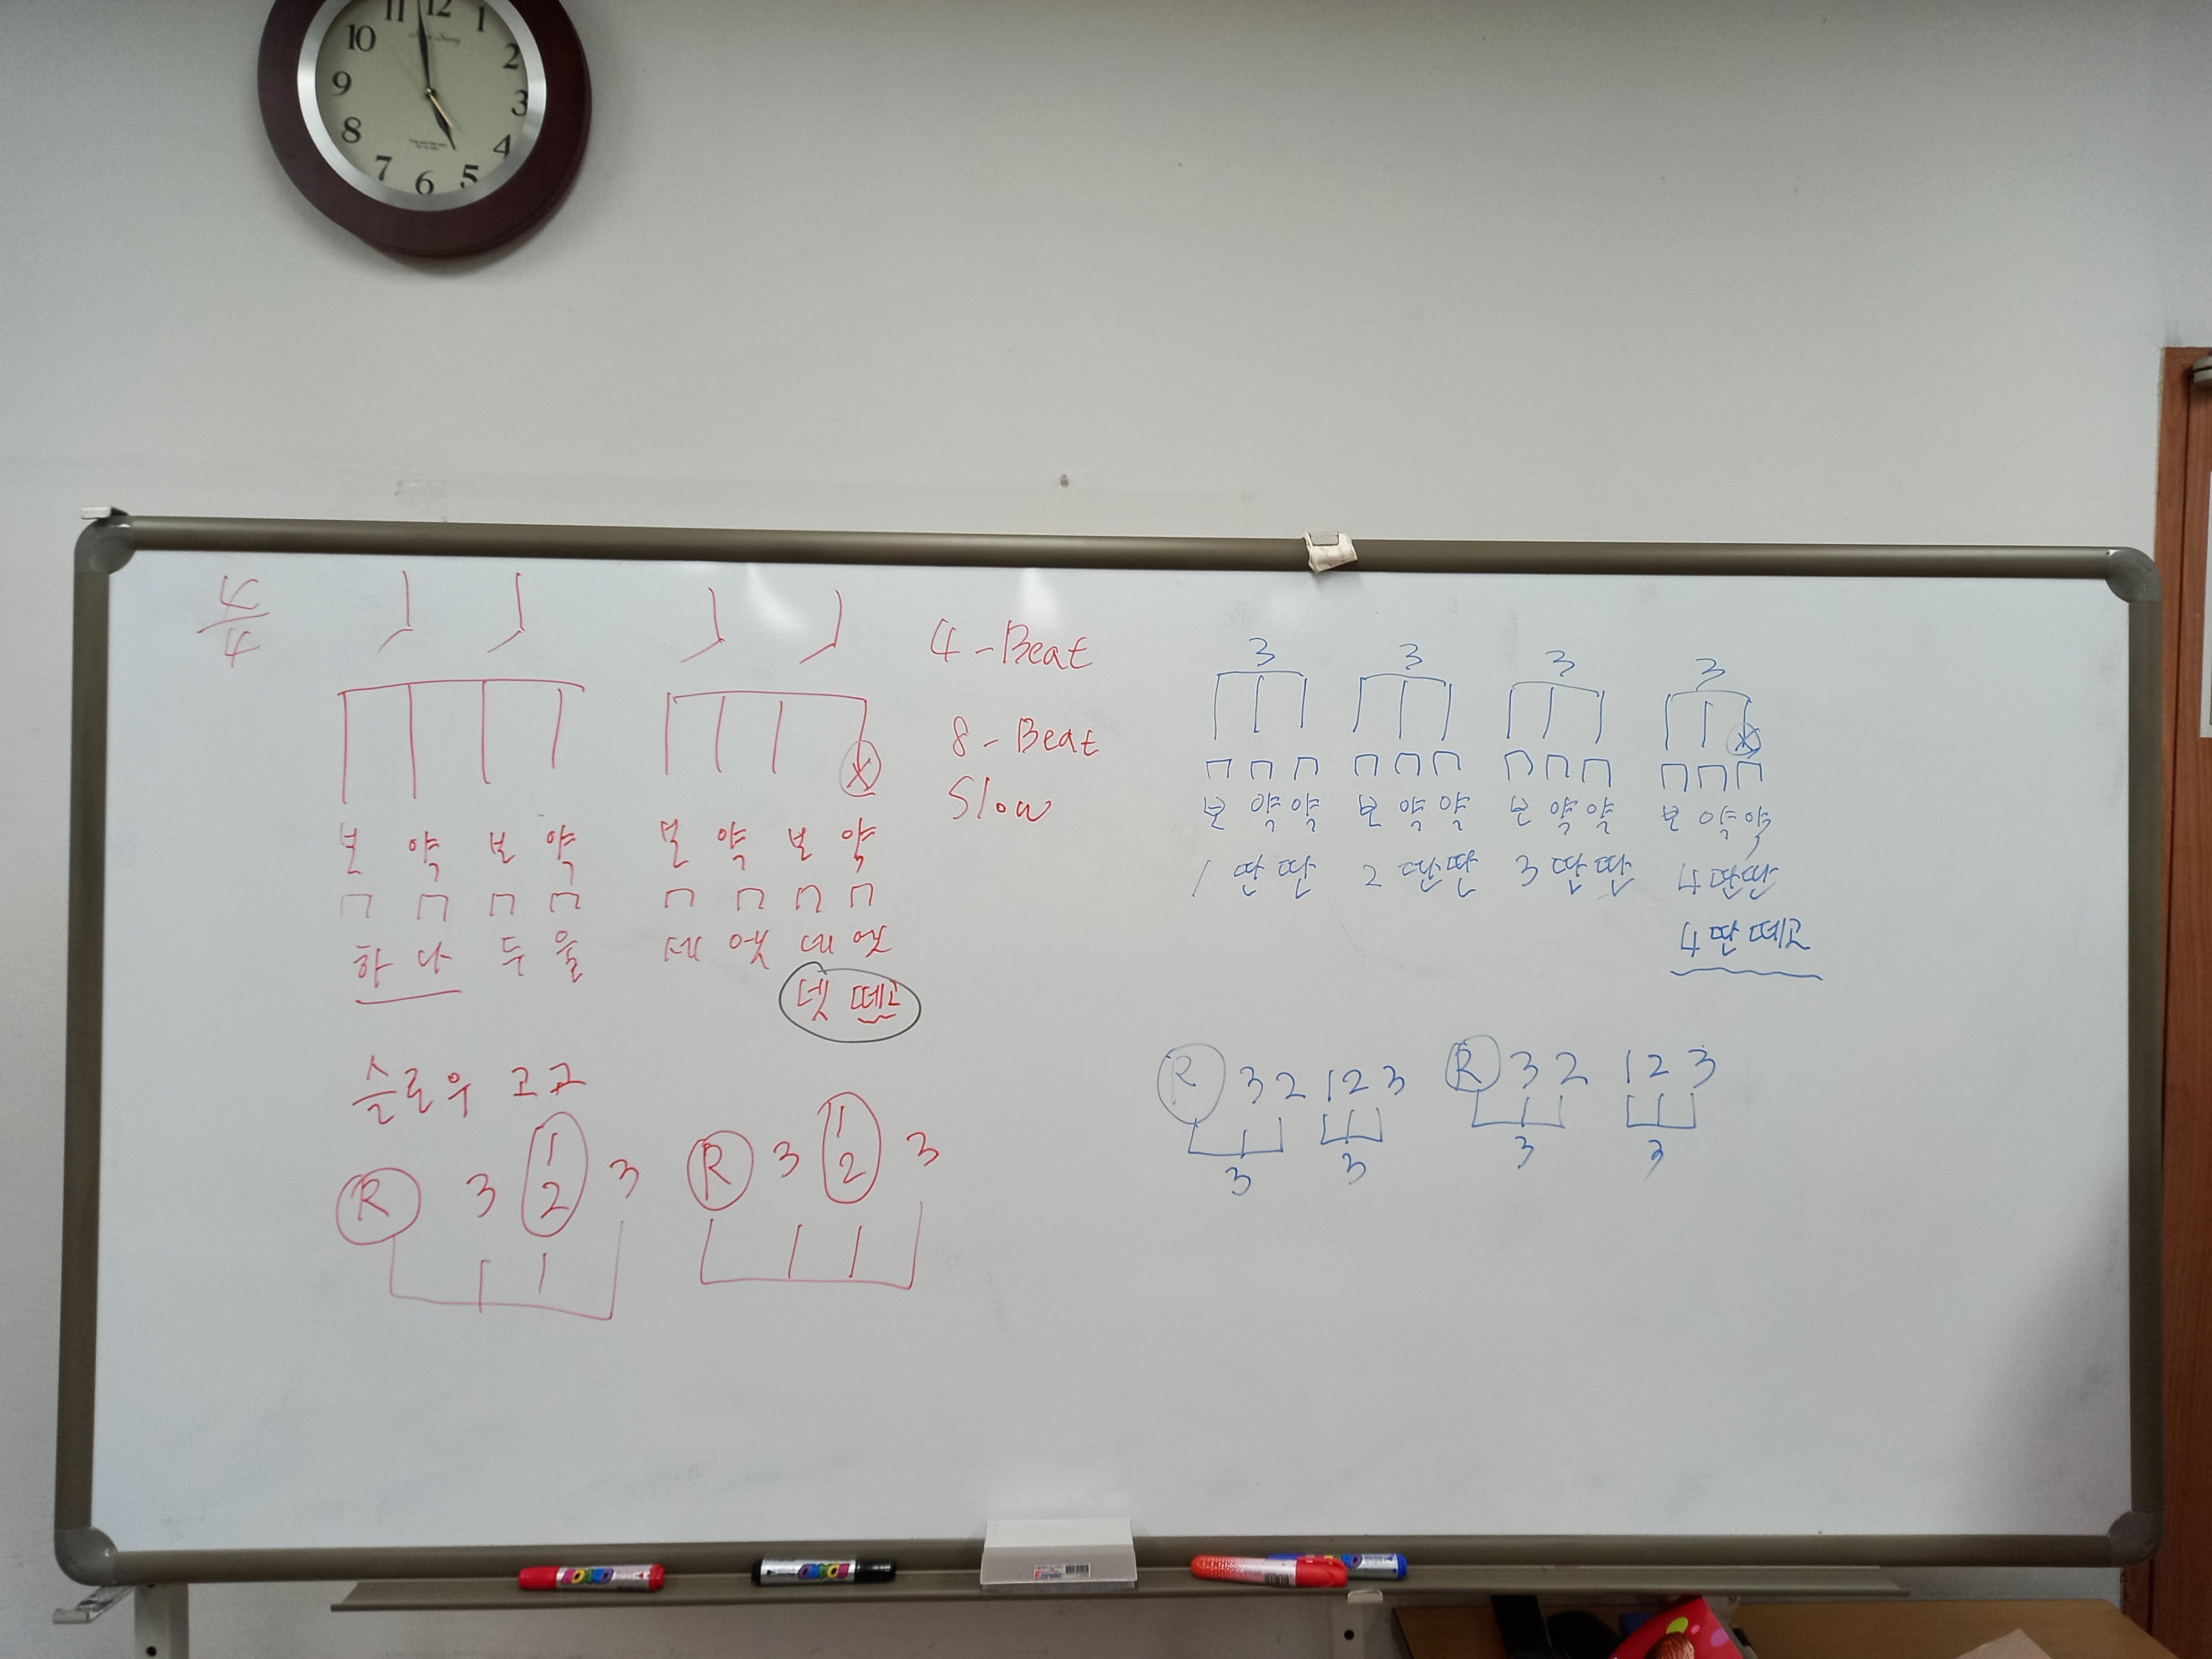 11 12 1
10 2
9 3
8 4
7 6 5
4/4
4 - Beat
8 - Beat
Slow
본 약 본 약 본 약 본 약
하 나 두 울 세 엣 네 엣
넷 떼고
슬로우 고고
R 3 1 2 3 R 3 1 2 3
3 3 3 3
본 약약 본 약약 본 약약 본 약약
1 딴딴 2 딴딴 3 딴딴 4 딴딴
4 딴 떼고
R 3 2 1 2 3 R 3 2 1 2 3
3 3 3 3